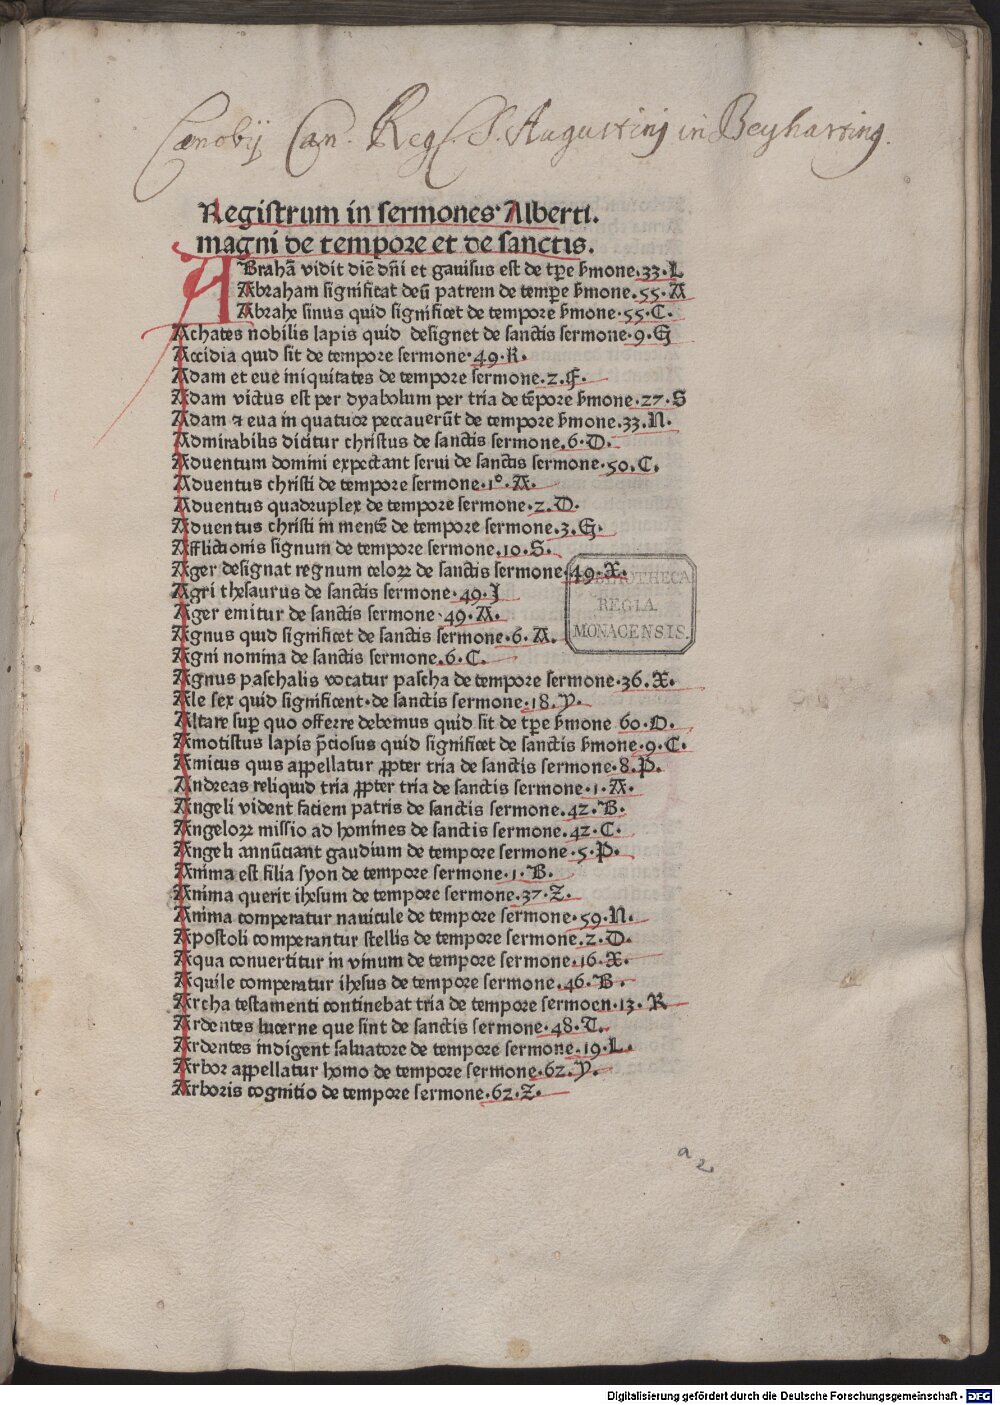 Cænobij Can. Reg. S. Augustinj in Beyharting.
Registrum in sermones Alberti.
magni de tempore et de sanctis.
ABrahã vidit diẽ dñi et gauisus est de tꝑe ẜmone.33.L
Abraham significat deũ patrem de tempe ẜmone.55.A
Abrahe sinus quid significet de tempore ẜmone.55.C.
Achates nobilis lapis quid designet de sanctis sermone.9.G
Accidia quid sit de tempore sermone.49.R.
Adam et eue iniquitates de tempore sermone.2.F.
Adam victus est per dyabolum per tria de tẽpore ẜmone.27.S
Adam ⁊ eua in quatuor peccauerũt de tempore ẜmone.33.N.
Admirabilis dicitur christus de sanctis sermone.6.D.
Aduentum domini expectant serui de sanctis sermone.50.C.
Aduentus christi de tempore sermone.1º.A.
Aduentus quadruplex de tempore sermone.2.D.
Aduentus christi in mentẽ de tempore sermone.3.G.
Afflictionis signum de tempore sermone.10.S.
Ager designat regnum celoꝝ de sanctis sermone.49.X.
Agri thesaurus de sanctis sermone.49.J
Ager emitur de sanctis sermone.49.A.
Agnus quid significet de sanctis sermone.6.A.
Agni nomina de sanctis sermone.6.C.
Agnus paschalis vocatur pascha de tempore sermone.36.X.
Ale sex quid significent.de sanctis sermone.18.Y.
Altare suꝑ quo offerre debemus quid sit de tꝑe ẜmone 60.O.
Amotistus lapis p̃ciosus quid significet de sanctis ẜmone.9.C.
Amicus quis appellatur ꝓpter tria de sanctis sermone.8.P.
Andreas reliquid tria ꝓpter tria de sanctis sermone.1.A.
Angeli vident faciem patris de sanctis sermone.42.B.
Angeloꝝ missio ad homines de sanctis sermone.42.C.
Angeli annũciant gaudium de tempore sermone.5.P.
Anima est filia syon de tempore sermone.1.B.
Anima querit ihesum de tempore sermone.37.Z.
Anima comperatur nauicule de tempore sermone.59.N.
Apostoli comperantur stellis de tempore sermone.2.D.
Aqua conuertitur in vinum de tempore sermone.16.X.
Aquile comperatur ihesus de tempore sermone.46.B.
Archa testamenti continebat tria de tempore sermoen.13.R
Ardentes lucerne que sint de sanctis sermone.48.T.
Ardentes indigent saluatore de tempore sermone.19.L.
Arbor appellatur homo de tempore sermone.62.Y.
Arboris cognitio de tempore sermone.62.Z.
BIBLIOTHECA
REGIA
MONACENSIS.
a2
Digitalisierung gefördert durch die Deutsche Forschungsgemeinschaft - DFG